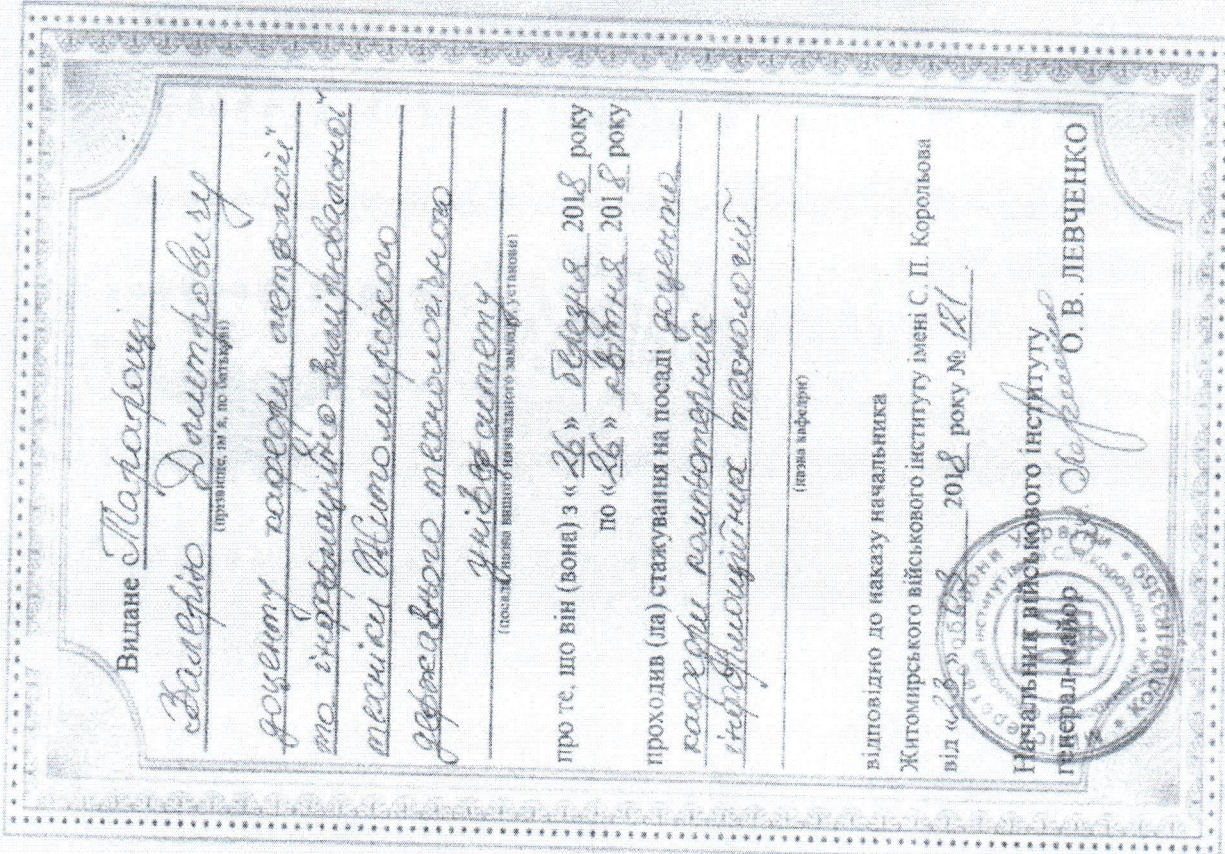 Видане Тарарощі
Валерію Дмитровичу
(прізвище, ім'я, по батькові)
доценту кафедри метрології
та інформаційно-вимірювальної
техніки Житомирського
державного технологічного
університету
(посада, назва вищого навчального закладу, установи)
про те, що він (вона) з «26» березня 2018 року
по «26» квітня 2018 року
проходив (ла) стажування на посаді доцента
кафедри комп'ютерних
інформаційних технологій
(назва кафедри)
відповідно до наказу начальника
Житомирського військового інституту імені С. П. Корольова
від «23» 2018 року № 121
Начальник військового інституту
генерал-майор О. В. ЛЕВЧЕНКО